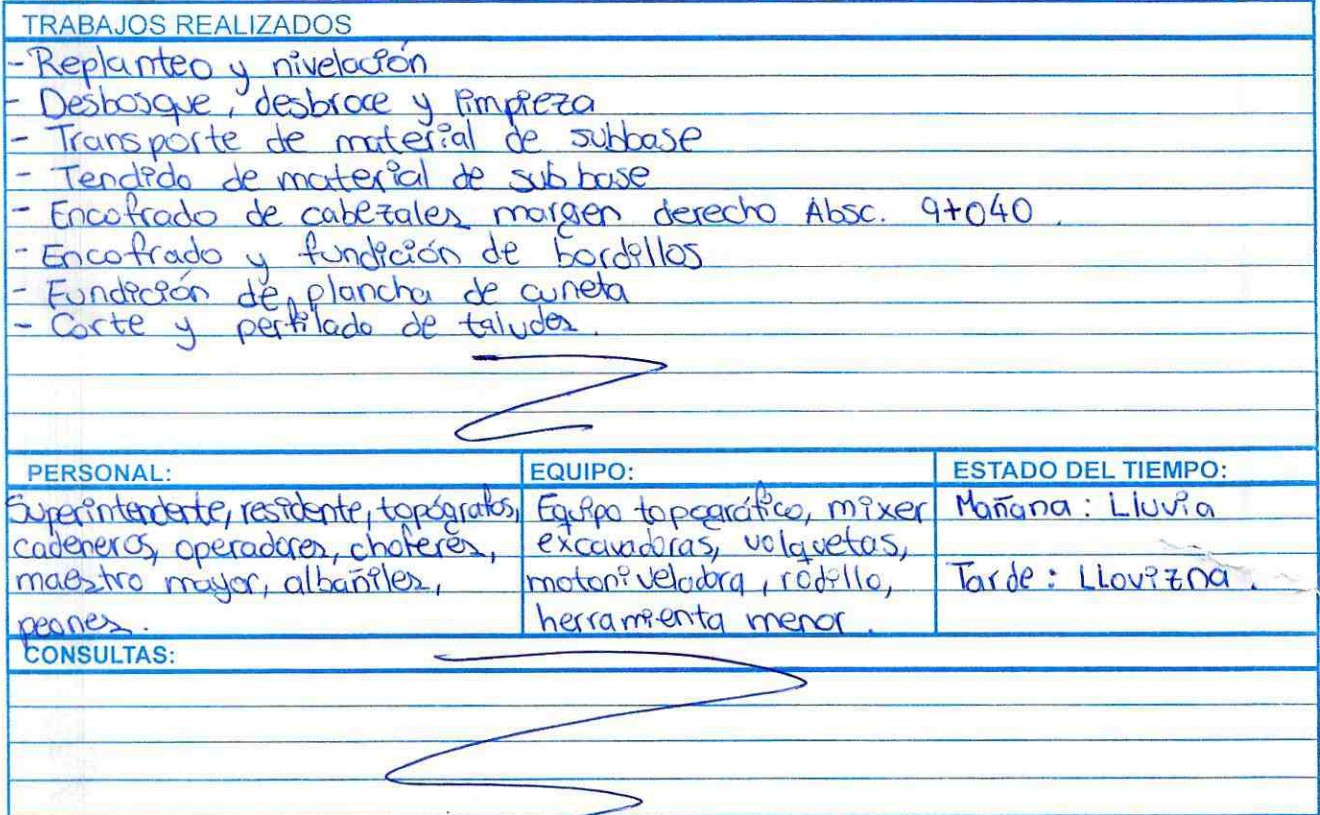 TRABAJOS REALIZADOS
- Replanteo y nivelación
- Desbosque, desbroce y limpieza
- Transporte de material de subbase
- Tendido de material de subbase
- Encofrado de cabezales margen derecho Absc. 9+040.
- Encofrado y fundición de bordillos
- Fundición de plancha de cuneta
- Corte y perfilado de taludes.
PERSONAL:
Superintendente, residente, topógrafos,
cadeneros, operadores, choferes,
maestro mayor, albañiles,
peones.
EQUIPO:
Equipo topográfico, mixer
excavadoras, volquetas,
motoniveladora, rodillo,
herramienta menor.
ESTADO DEL TIEMPO:
Mañana: Lluvia
Tarde: LLovizna.
CONSULTAS: